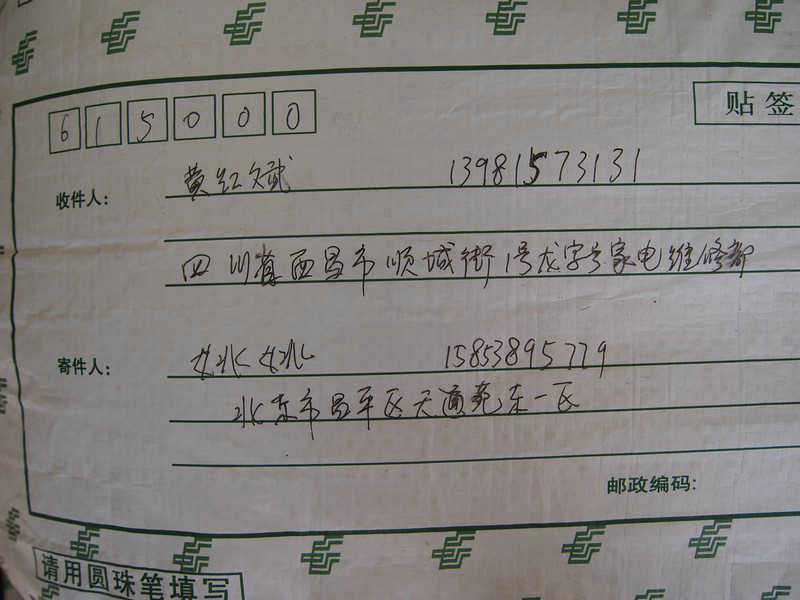 615000
贴签
收件人: 黄红斌 13981573131
四川省西昌市顺城街1号龙字号家电维修部
寄件人: 姚姚 15853895779
北京市昌平区天通苑东一区
邮政编码:
请用圆珠笔填写